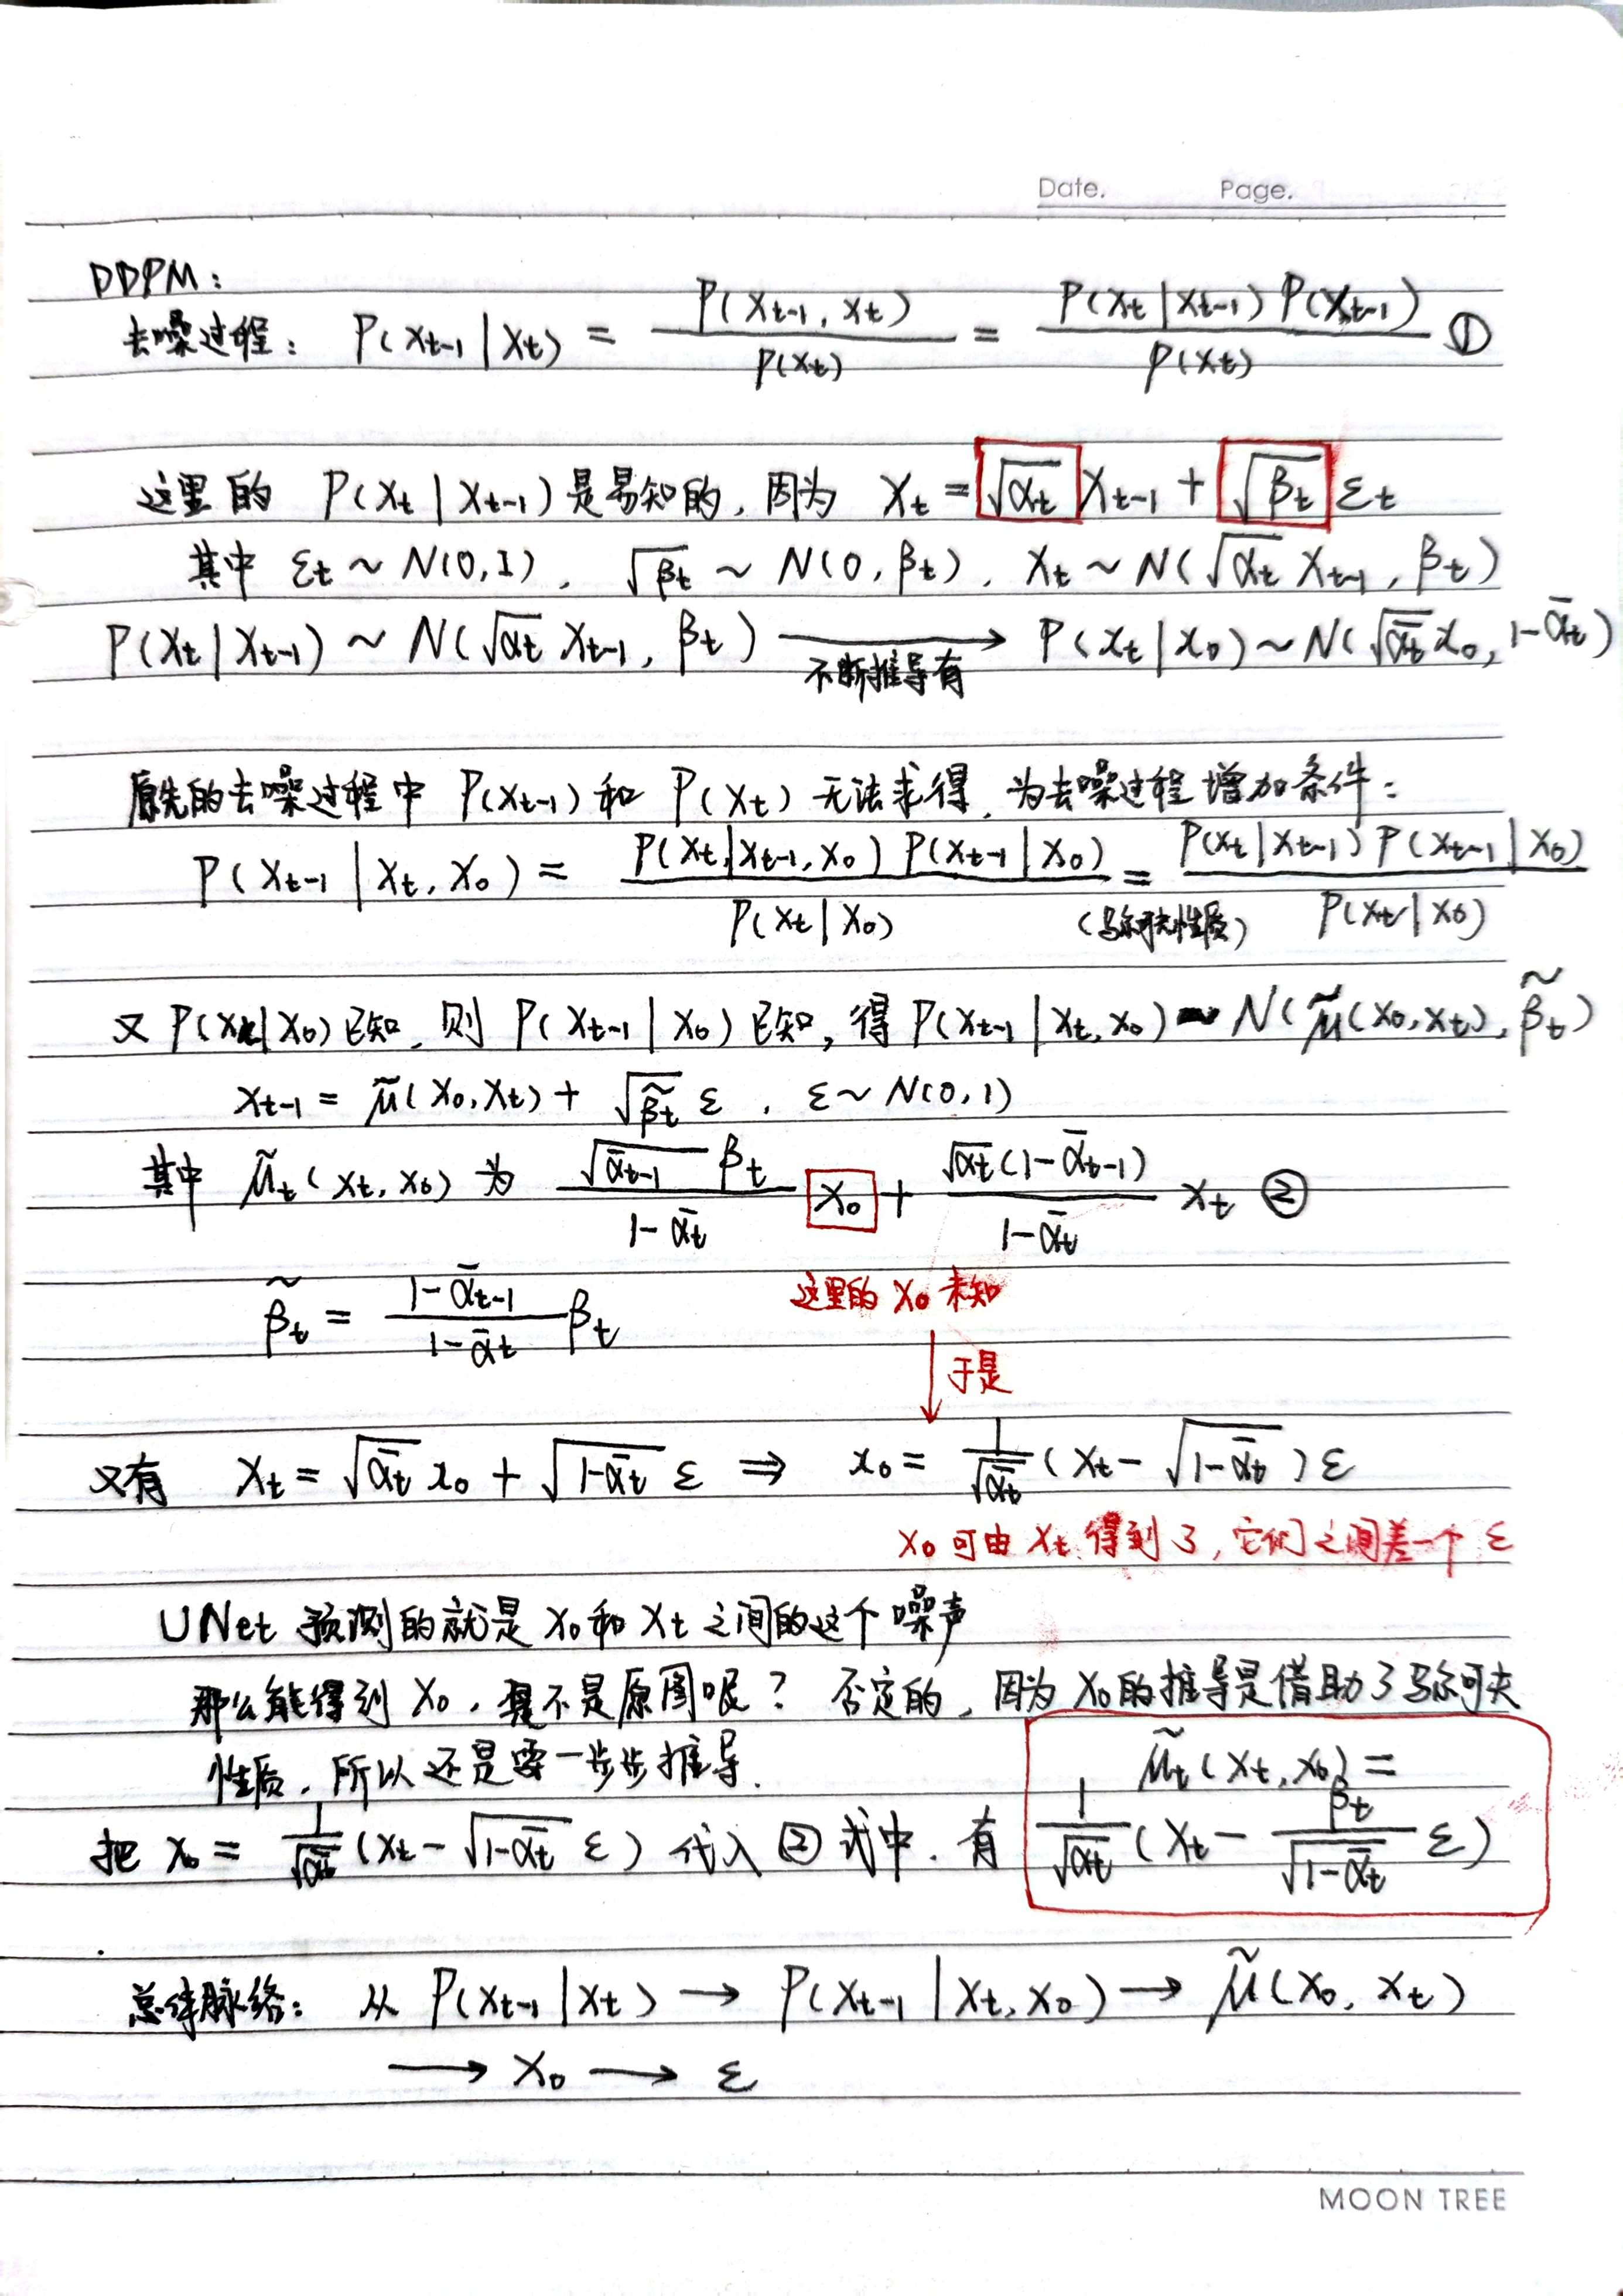 Date. Page.
DDPM:
去噪过程: P(x_{t-1} | x_t) = \frac{P(x_{t-1}, x_t)}{P(x_t)} = \frac{P(x_t | x_{t-1}) P(x_{t-1})}{P(x_t)} ①
这里的 P(x_t | x_{t-1}) 是易知的, 因为 x_t = \sqrt{α_t} x_{t-1} + \sqrt{β_t} ε_t
其中 ε_t ~ N(0, I), \sqrt{β_t} ~ N(0, β_t), x_t ~ N(\sqrt{α_t} x_{t-1}, β_t)
P(x_t | x_{t-1}) ~ N(\sqrt{α_t} x_{t-1}, β_t) \xrightarrow{不断推导有} P(x_t | x_0) ~ N(\sqrt{\bar{α}_t} x_0, 1-\bar{α}_t)
原先的去噪过程中 P(x_{t-1}) 和 P(x_t) 无法求得, 为去噪过程增加条件:
P(x_{t-1} | x_t, x_0) = \frac{P(x_t | x_{t-1}, x_0) P(x_{t-1} | x_0)}{P(x_t | x_0)} = \frac{P(x_t | x_{t-1}) P(x_{t-1} | x_0)}{P(x_t | x_0)} (马尔可夫性质)
又 P(x_t | x_0) 已知, 则 P(x_{t-1} | x_0) 已知, 得 P(x_{t-1} | x_t, x_0) ~ N(\tilde{μ}(x_0, x_t), \tilde{β}_t)
x_{t-1} = \tilde{μ}(x_0, x_t) + \sqrt{\tilde{β}_t} ε, ε ~ N(0, 1)
其中 \tilde{μ}_t(x_t, x_0) 为 \frac{\sqrt{\bar{α}_{t-1}} β_t}{1-\bar{α}_t} x_0 + \frac{\sqrt{α_t}(1-\bar{α}_{t-1})}{1-\bar{α}_t} x_t ②
\tilde{β}_t = \frac{1-\bar{α}_{t-1}}{1-\bar{α}_t} β_t
这里的 x_0 未知
↓ 于是
又有 x_t = \sqrt{\bar{α}_t} x_0 + \sqrt{1-\bar{α}_t} ε ⇒ x_0 = \frac{1}{\sqrt{\bar{α}_t}} (x_t - \sqrt{1-\bar{α}_t}) ε
x_0 可由 x_t 得到了, 它们之间差一个 ε
UNet 预测的就是 x_0 和 x_t 之间的这个噪声
那么能得到 x_0, 是不是原图呢? 否定的, 因为 x_0 的推导是借助了马尔可夫
性质, 所以还是要一步步推导.
把 x_0 = \frac{1}{\sqrt{\bar{α}_t}} (x_t - \sqrt{1-\bar{α}_t} ε) 代入 ② 式中. 有
\tilde{μ}_t(x_t, x_0) =
\frac{1}{\sqrt{α_t}} (x_t - \frac{β_t}{\sqrt{1-\bar{α}_t}} ε)
总结脉络: 从 P(x_{t-1} | x_t) → P(x_{t-1} | x_t, x_0) → \tilde{μ}(x_0, x_t)
→ x_0 → ε
MOON TREE